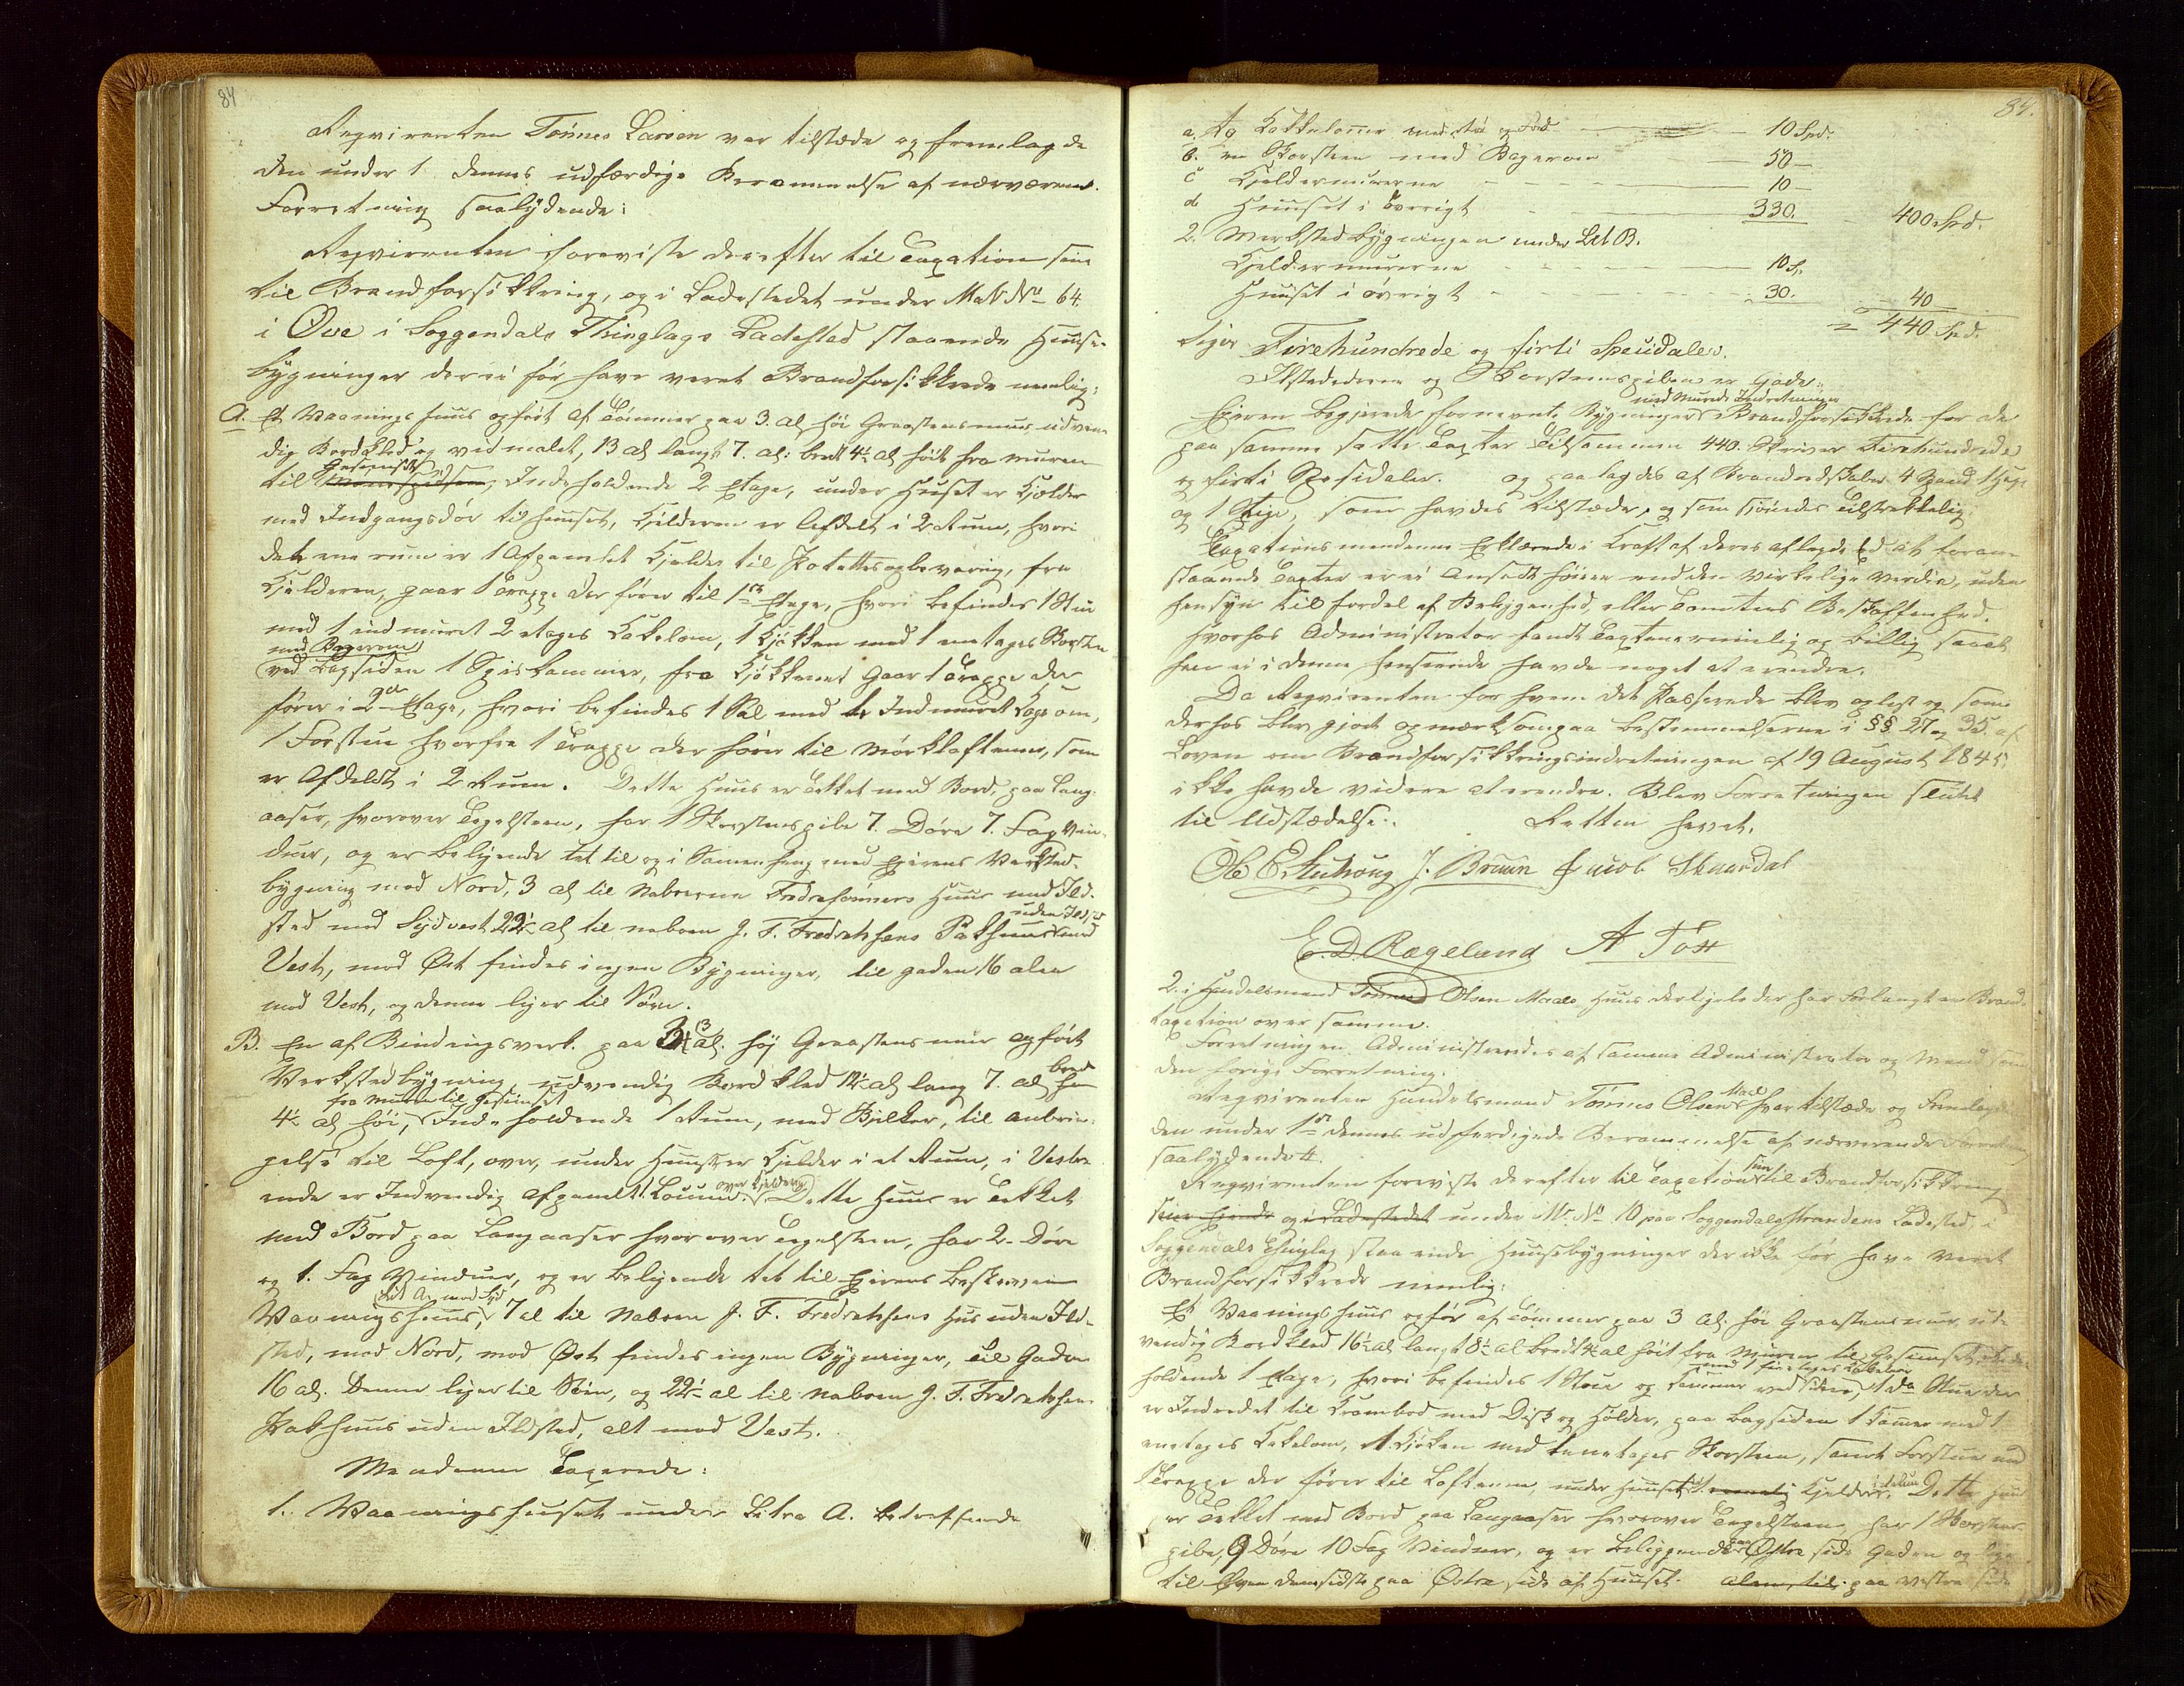 84
Reqvirenten Tønnes Larsen var tilstæde og fremlagde
den under 1 dennes udfærdige Berammelse af nærværend.
Forretning saalydende:
Reqvirenten foreviste derefter til Taxation sine
til Brandforsikkring, og i Ladestedet under Mat No 64
i Ove i Soggendals Thinglags Ladested staaende Huuse-
bygninger der ei før have veret Brandforsikkrede nemlig:
A. Et Vaanings huus opført af Tømmer paa 3. Al høi Graastensmuur udven-
dig Bordklæd og vid malet, 13 al langt 7. al: bredt 4½ al høit fra muren
til Gesimset, Indeholdende 2 Etage, under Huuset er Kjelder
med Indgangsdør til huuset, Kjelderen er Afdelt i 2 Rum, hvori
det ene rum er 1 Afpanelet Kjelder til Potettesopbevaring, fra
Kjelderen, gaar 1 Trappe der fører til 1ste Etage, hvori befindes 1 Stue
med 1 indmuret 2 etages Kakelovn, 1 Kjøkken med 1 enetages Skorsten
med Bagerovn
ved Bagsiden 1 Spiskammer, fra Kjøkkenet gaar 1 Trappe der
fører i 2den Etage, hvori befindes 1 Sal med Indmuret Kakelovn,
1 Forstue hvorfra 1 Trappe der fører til mørkloftene, som
er Afdeldt i 2 Rum. Dette Huus er Tekket med Bord, paa Lang-
aaser, hvorover Tegelsteen, har 1 Skorstenspibe 7. Døre 7. Fag Vin-
duer, og er beliggende tet til og i Samenheng med Eierens Verksted-
bygning mod Nord, 3 al til naboerne Huus med Ild-
sted mod Sydvest 22½ al til naboen J. F. Fredriksens Pakhuus uden Ildsted mod
Vest, mod Øst findes ingen Bygninger, til gaden 16 alen
mod Vest, og denne liger til Søen.
B. En af Bindingsverk. paa 3 al. høj Graastens muur opført
Verkstedbygning, udvendig Bordklæd 12½ al lang 7. al bred
fra Muren til Gesimset
4½ al høi, Indeholdende 1 Rum, med Bjelker, til anbrin-
gelse til Loft, over, under Huuset er Kjelder i et Rum, i Vestre
ende er Indvendig afpanelt over Kjelderen. Dette Huus er Tekket
med Bord paa Langaaser hvorover Tegelsteen, har 2. Døre
og 1. Fag Vinduer, og er beligende tet til Eierens beskrevne
Lit A. mod Syd
Vaaningshuus, 7 al til Naboen J. F. Fredriksens Hus uden Ild-
sted, mod Nord, mod Øst findes ingen Bygninger, til Gaden
16 al. Denne liger til Søen, og 22½ al til Naboen J. F. Fredriksens
Pakhuus uden Ildsted, alt mod Vest.
Mændene Taxerede:
1. Vaaningshuset under Litra A. betreffende
84.
a. to Kakkelovne med Rør og Fod 10 Spd.
b. en Skorsteen med Bagerovn 50 —
c Kjeldermurerne 10 —
d Huuset i Øvrigt 330. 400 Spd.
2. Verkstedbygningen under Lit B.
Kjeldermurerne 10 S.
Huuset i øvrigt 30. 40
= 440 Spd.
siger Firehundrede og firti Speciedaler.
Ildstederne og Skorsteenspiben er Gode.
med Murede Indretninger
Eieren begjerede fornevnte Bygninger Brandforsikkrede for de
paa samme satte Taxter Tilsammen 440. Skriver Firehundrede
og firti Spesidaler. og paalagdes af Brandredskaber 4 Spand 1 Hage
og 1 Stige, som havdes tilstæde, og som skjøndes tilstrekkelig.
Taxationsmændene Erklærede i Kraft af deres aflagde Ed at foran-
staaende Taxter er ei Ansadt høiere end den virkelige Verdie, uden
hensyn til fordel af Beliggenhed, eller Tomtens Beskaffenhed.
hvorhos Administrator fandt Taxterne rimelig og billig samt
han ei i denne henseende havde noget at erindre.
Da Reqvirenten for hvem det Passerede blev oplest og som
derhos blev gjort opmærksom paa bestemmelserne i §§ 27 og 35. af
Loven om Brandforsikkringsindretningen af 19 August 1845
ikke havde videre at erindre. Blev Forretningen sluttet
til Udstædelse. Retten hevet.
J. Bruun Jacob Skaardal
E. D. Rægeland A Toft
2. i Handelsmand Tønnes Olsen Maals, Huus der har forlangt en Brand-
taxation over samme.
Forretningen Administreredes af samme Administrator og Mænd som
den forrige Forretning.
Reqvirenten Handelsmand Tønnes Olsen Maal var tilstæde og fremlagde
den under 1ste dennes udferdigede Berammelse af nerverende Forretning
saalydende.
Reqvirenten foreviste derefter til Taxation sine til Brandforsikkring
under M. No 10 paa Soggendalsstrandens Ladested, i
Soggendals Thinglag staaende Huusebygninger der ikke før have veret
Brandforsikkrede nemlig:
Et Vaaningshuus opført af Tømmer paa 3 al. høi Graastensmuur, ud-
vendig Bordklæd 16½ al langt 8½ al bredt 4½ al høit fra Muren til Gesimset, inde-
holdende 1 Etage, hvori befindes 1 Stue og kammer ved siden, 1 do Stue der
er Indredet til Krambod med Disk og Hølder, paa bagsiden 1 Kamer med 1
enetages Kakelovn, 1 Kjøken med 1 enetages Skorsteen, samt Forstue med
1 Trappe der fører til Loftene, under Huuset Kjelder. Dette Huus
er Tekket med Bord paa Langaaser hvorover Tegelsteen, har 1 Skorsteens-
pibe, 9 Døre 10 Fag Vinduer, og er beliggende paa Østre side Gaden og
til paa Østre side af Huuset. paa vestre side